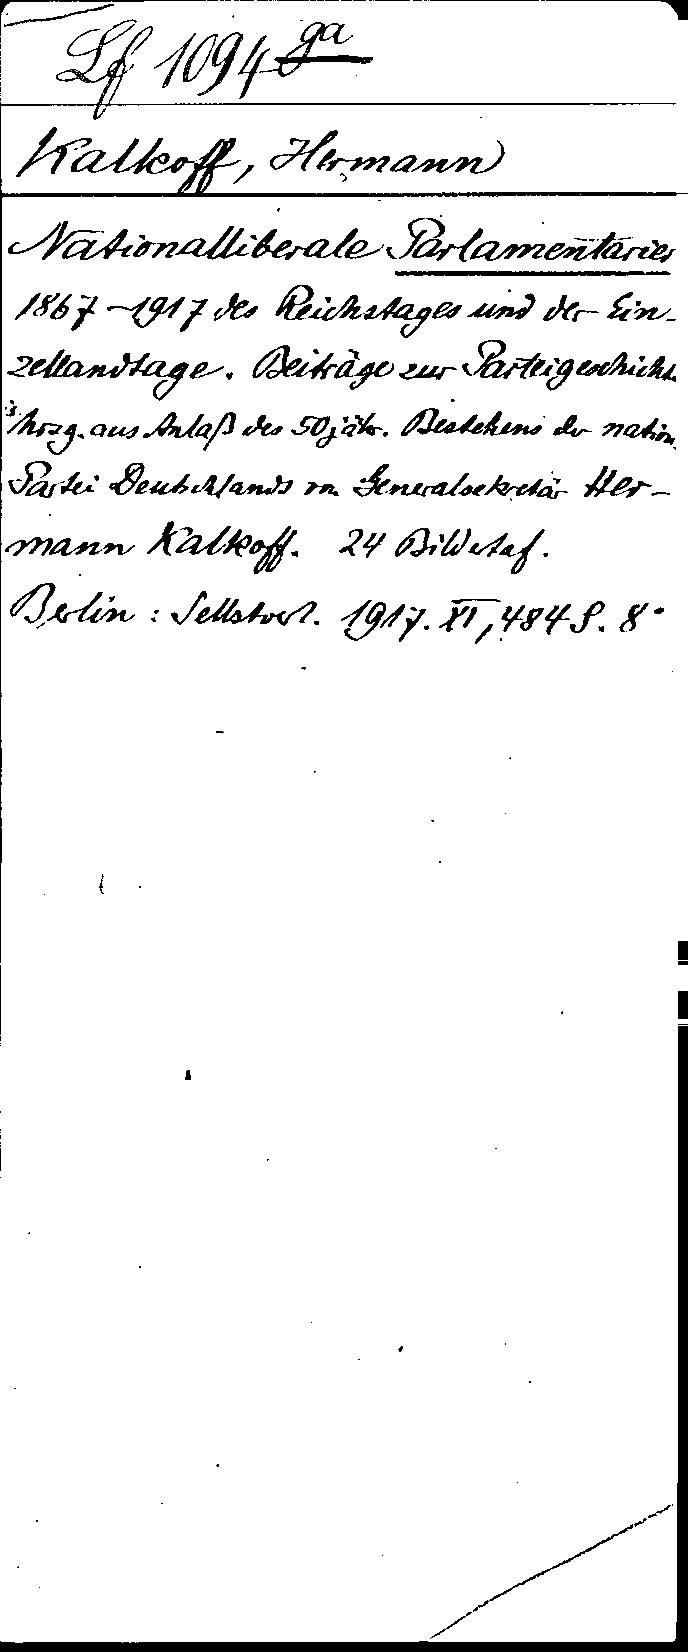 Lf 1094 ga
Kalkoff, Hermann
Nationalliberale Parlamentarier
1867-1917 des Reichstages und der Ein-
zellandtage. Beiträge zur Parteigeschicht
hrsg. aus Anlaß des 50jähr. Bestehens der nation.
Partei Deutschlands von Generalsekretär Her-
mann Kalkoff. 24 Bildtaf.
Berlin: Selbstverl. 1917. XI, 484 S. 8°